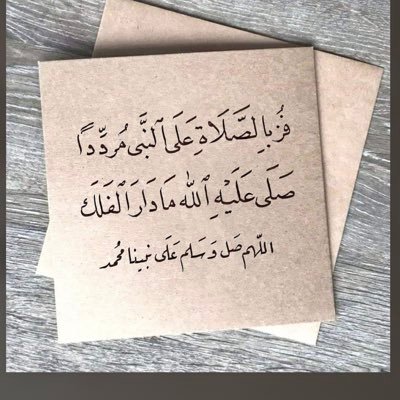 فُزْ بِالصَّلَاةِ عَلَى النَّبِي مُرَدِّدًا
صَلَّى عَلَيْهِ اللّٰهُ مَا دَارَ الْفَلَكُ
اللهم صَل وَسَلم عَلَى نبينا محمد